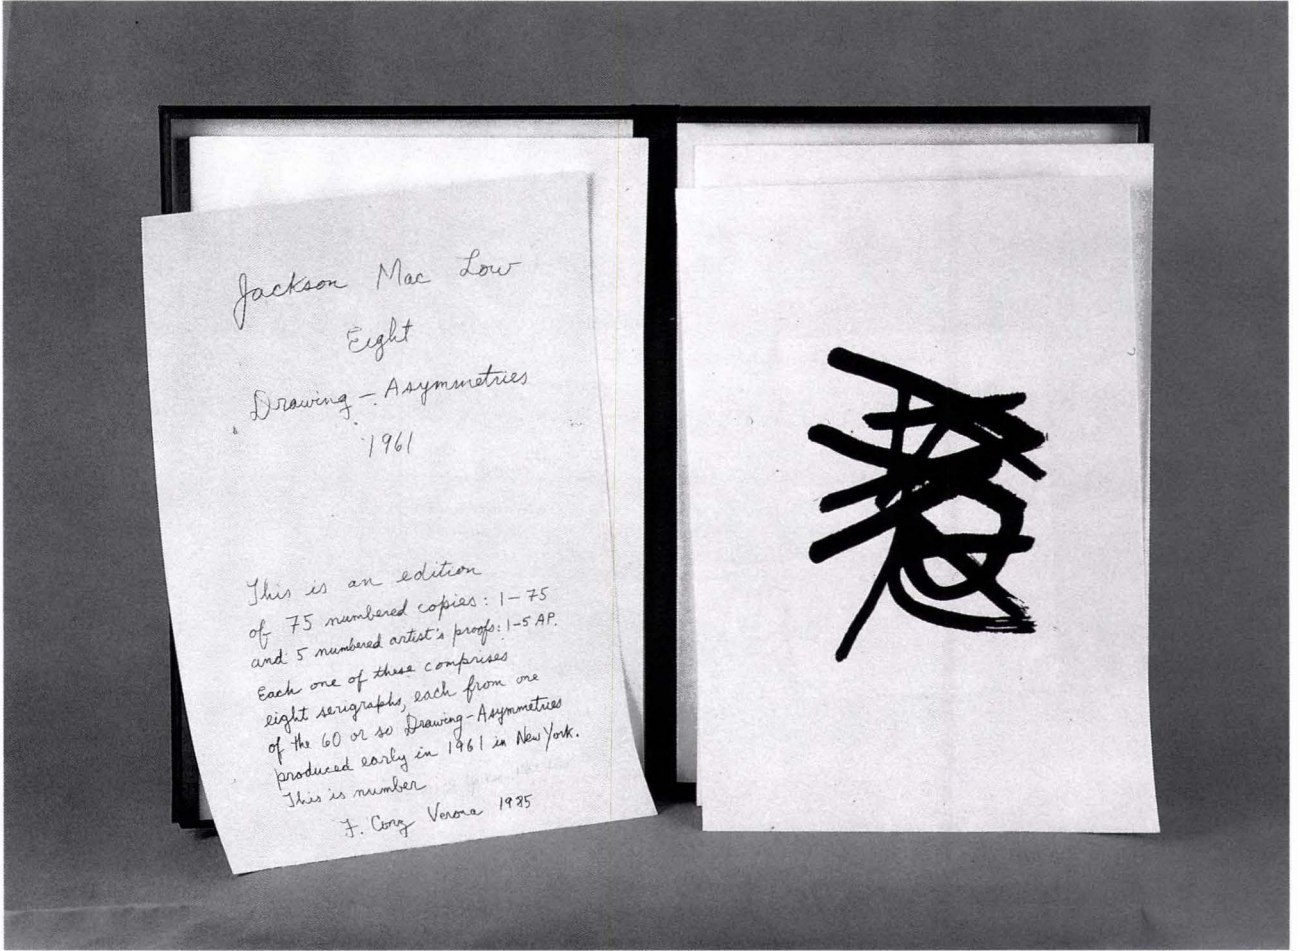 Jackson Mac Low
Eight
Drawing-Asymmetries
1961
This is an edition
of 75 numbered copies: 1-75
and 5 numbered artist's proofs: 1-5 AP.
Each one of these comprises
eight serigraphs, each from one
of the 60 or so Drawing-Asymmetries
produced early in 1961 in New York.
This is number
F. Conz Verona 1985